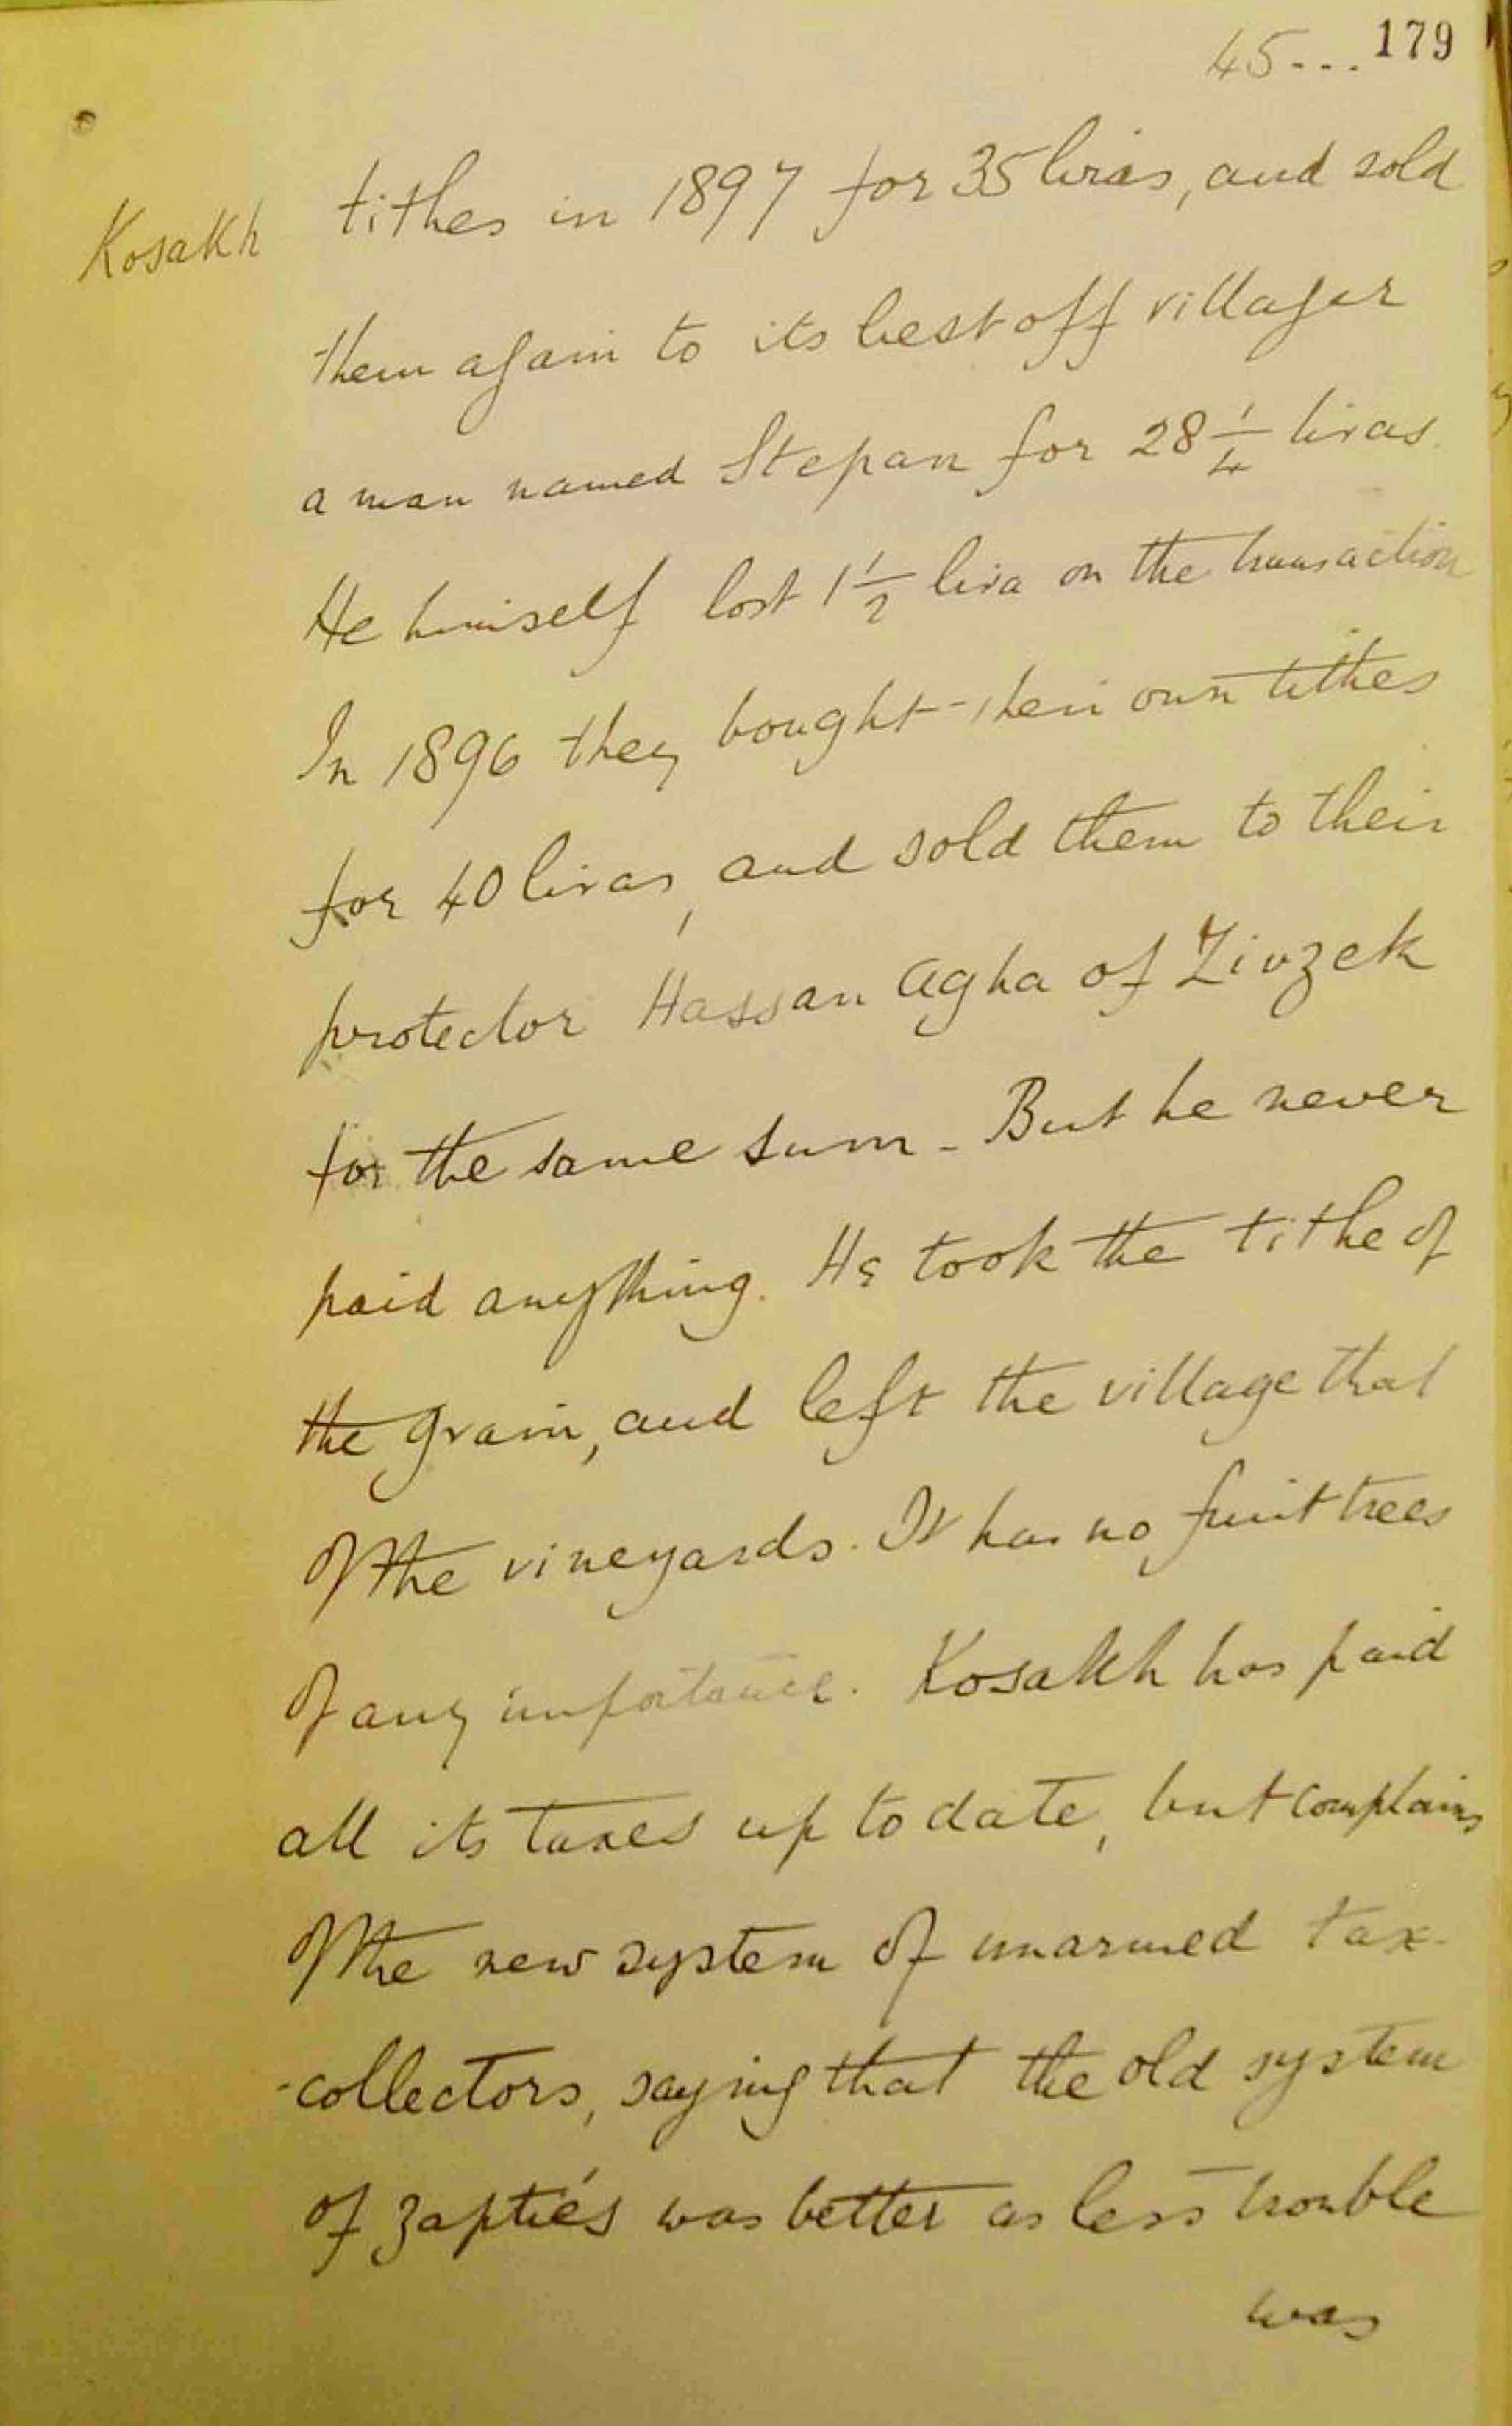 45... 179
Kosakh
tithes in 1897 for 35 liras, and sold
them again to its best off villager
a man named Stepan for 28 1/4 liras.
He himself lost 1 1/2 lira on the transaction
In 1896 they bought their own tithes
for 40 liras, and sold them to their
protector Hassan Agha of Zivzek
for the same sum - But he never
paid anything. He took the tithe of
the grain, and left the village that
of the vineyards. It has no fruit trees
of any importance. Kosakh has paid
all its taxes up to date, but complains
of the new system of unarmed tax-
-collectors, saying that the old system
of zaptiés was better as less trouble
was